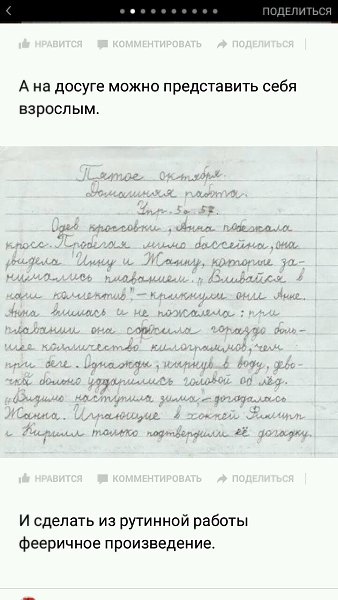 ПОДЕЛИТЬСЯ
НРАВИТСЯ КОММЕНТИРОВАТЬ ПОДЕЛИТЬСЯ
А на досуге можно представить себя
взрослым.
Пятое октября.
Домашняя работа.
Упр. 57.
Одев кроссовки, Анна побежала
кросс. Пробегая мимо бассейна, она
увидела Инну и Жанну, которые за-
нимались плаванием. „Вливайся в
наш коллектив!" – крикнули они Анне.
Анна влилась и не пожалела: при
плавании она сбросила гораздо боль-
шее количество килограммов, чем
при беге. Однажды, нырнув в воду, дево-
чки больно ударились головой об лёд.
„Видимо наступила зима", – догадалась
Жанна. Играющие в хоккей Филипп
и Кирилл только подтвердили её догадку.
НРАВИТСЯ КОММЕНТИРОВАТЬ ПОДЕЛИТЬСЯ
И сделать из рутинной работы
фееричное произведение.